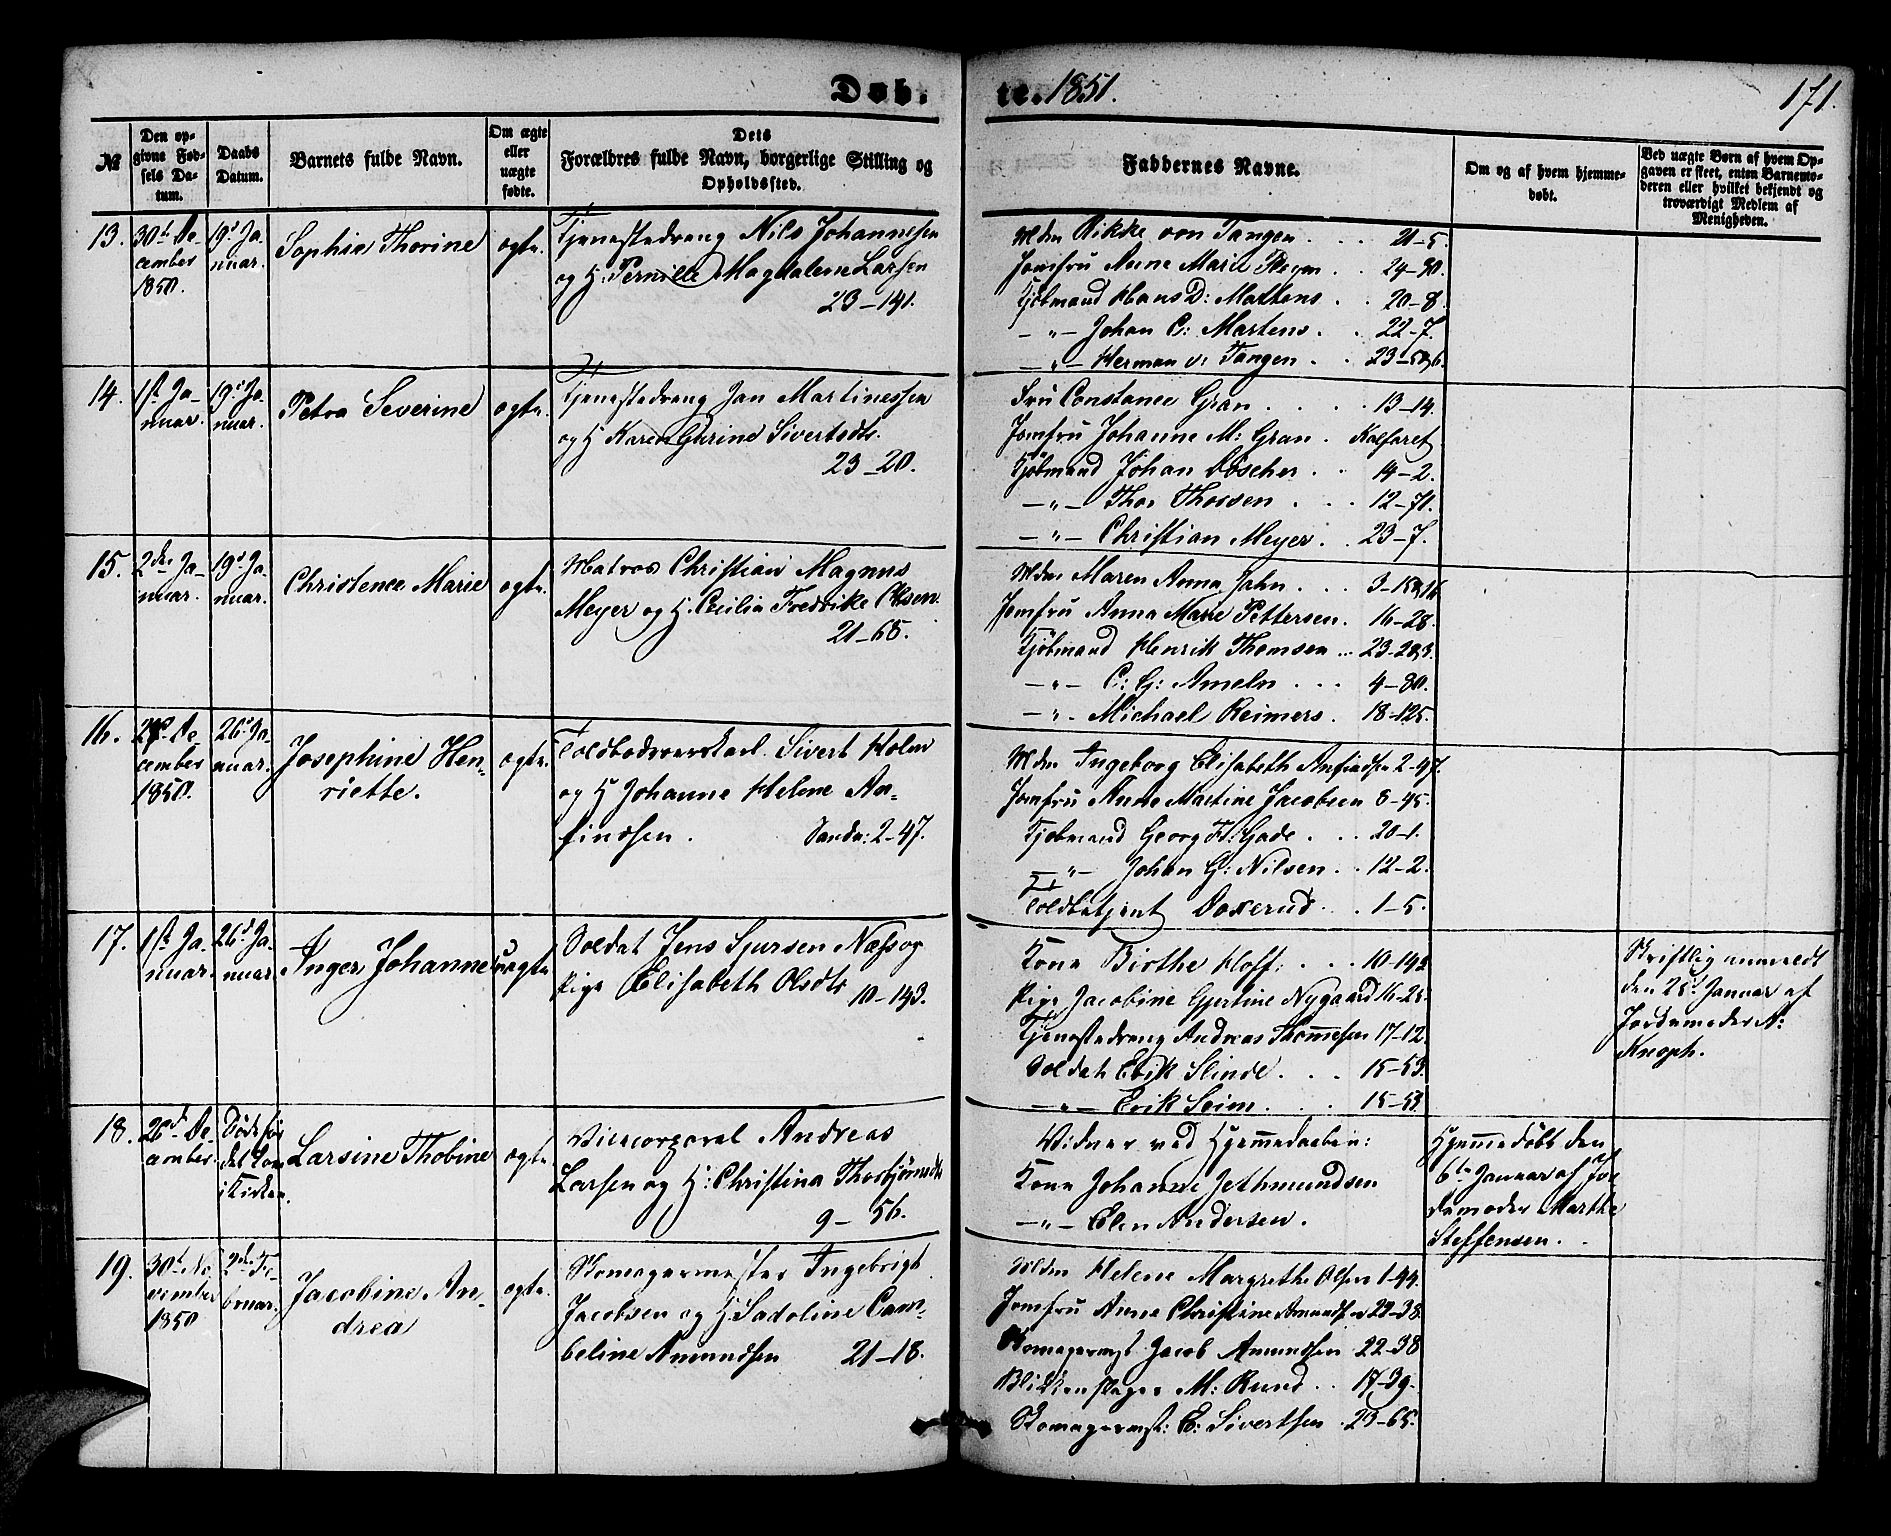 Døb-
te. 1851.
171.
№
Den op-
givne Fød-
sels Da-
tum.
Daabs
Datum.
Barnets fulde Navn.
Om ægte
eller
uægte
fødte.
Dets
Forældres fulde Navn, borgerlige Stilling og
Opholdssted.
Faddernes Navne.
Om og af hvem hjemme-
døbt.
Ved uægte Børn af hvem Op-
gaven er skeet, enten Barnemo-
deren eller hvilket bekjendt og
troværdigt Medlem af
Menigheden.
13.
30t De-
cember
1850.
19d Ja-
nuar.
Sophia Thorine
ægte.
Tjenestedreng Nils Johannesen
og H: Pernille Magdalene Larsen
23-141.
Mdm Rikke von Tangen . . . 21-5.
Jomfru Anne Marie . . 24-30.
Kjøbmand Hans D: Mattens . . 20-8.
-"- Johan C: Martens . . 22-7.
-"- Herman v: Tangen . . 23-596.
14.
1st Ja-
nuar.
19d Ja-
nuar.
Petra Severine
ægte.
Tjenestedreng Jan Martinessen
og H Karen Gurine Sivertsdtr.
23-20.
Fru Constance Gran . . . . 13-14.
Jomfru Johanne M: Gran . Kalfaret
Kjøbmand Johan Döscher . . 14-2.
-"- Thor Thorsen . . . 12-71.
-"- Christian Meyer . . 23-7.
15.
2den Ja-
nuar.
19d Ja-
nuar.
Christence Marie
ægte.
Matros Christian Magnus
Meyer og H: Cecilia Fredrike Olsen.
21-65.
Mdm Maren Anna Jahn . . .
Jomfru Anna Marie Pettersen . 16-28.
Kjøbmand Henrik Thomsen ..
-"- C: G: Ameln . . . 4-80.
-"- Michael Reimers . 18-125.
16.
De-
cember
1850.
26d Ja-
nuar.
Josephine Hen-
riette.
ægte.
Sivert Holm
og H Johanne Helene An-
findsen. Sandv: 2-47.
Mdm Ingeborg Elisabeth Anfindsen 2-47.
Jomfru Anne Martine Jacobsen 8-45.
Kjøbmand Georg Fr: Gade . . . 20-1.
-"- Johan G: Nilsen . . 12-2.
Toldbetjent Doxerud . . 1-5.
17.
1st Ja-
nuar.
26d Ja-
nuar.
Inger Johanne
uægte
Soldat Jens Sjursen Næss og
Pige Elisabeth Olsdtr 10-143.
Kone Birthe Hoff . . . . 10-143
Pige Jacobine Gjertine Nygaard 16-25.
Tjenestedreng Andreas Thommesen 17-12.
Soldat Erik Slinde . . . 15-53.
-"- Erik Seim . . . 15-53
Skriftlig anmeldt
den 25d Januar af
Jordemoder A:
Knoph.
18.
26d De-
cember.
Døde før
det kom
i Kirken.
Larsine Thobine
ægte.
Vicecorporal Andreas
Larsen og H: Christina Thorbjörnsdtr
9-56.
Vidner ved Hjemmedaaben:
Kone Johanne Jethmundsen
-"- Elen Andersen.
Hjemmedöbt den
6te Januar af Jor-
demoder Marthe
Steffensen.
19.
30t No-
vember
1850
2den Fe-
bruar.
Jacobine An-
drea
ægte.
Skomagermester Ingebrigt
Jacobsen og H: Sadoline Cam-
beline Amundsen 21-18.
Mdm Helene Margrethe Olsen 1-44.
Jomfru Anne Christine Amundsen 22-38.
Skomagermst Jacob Amundsen 22-38
Blikkenslager M: Rund . . 17-39.
Skomagermst: E: Sivertsen . 23-65.